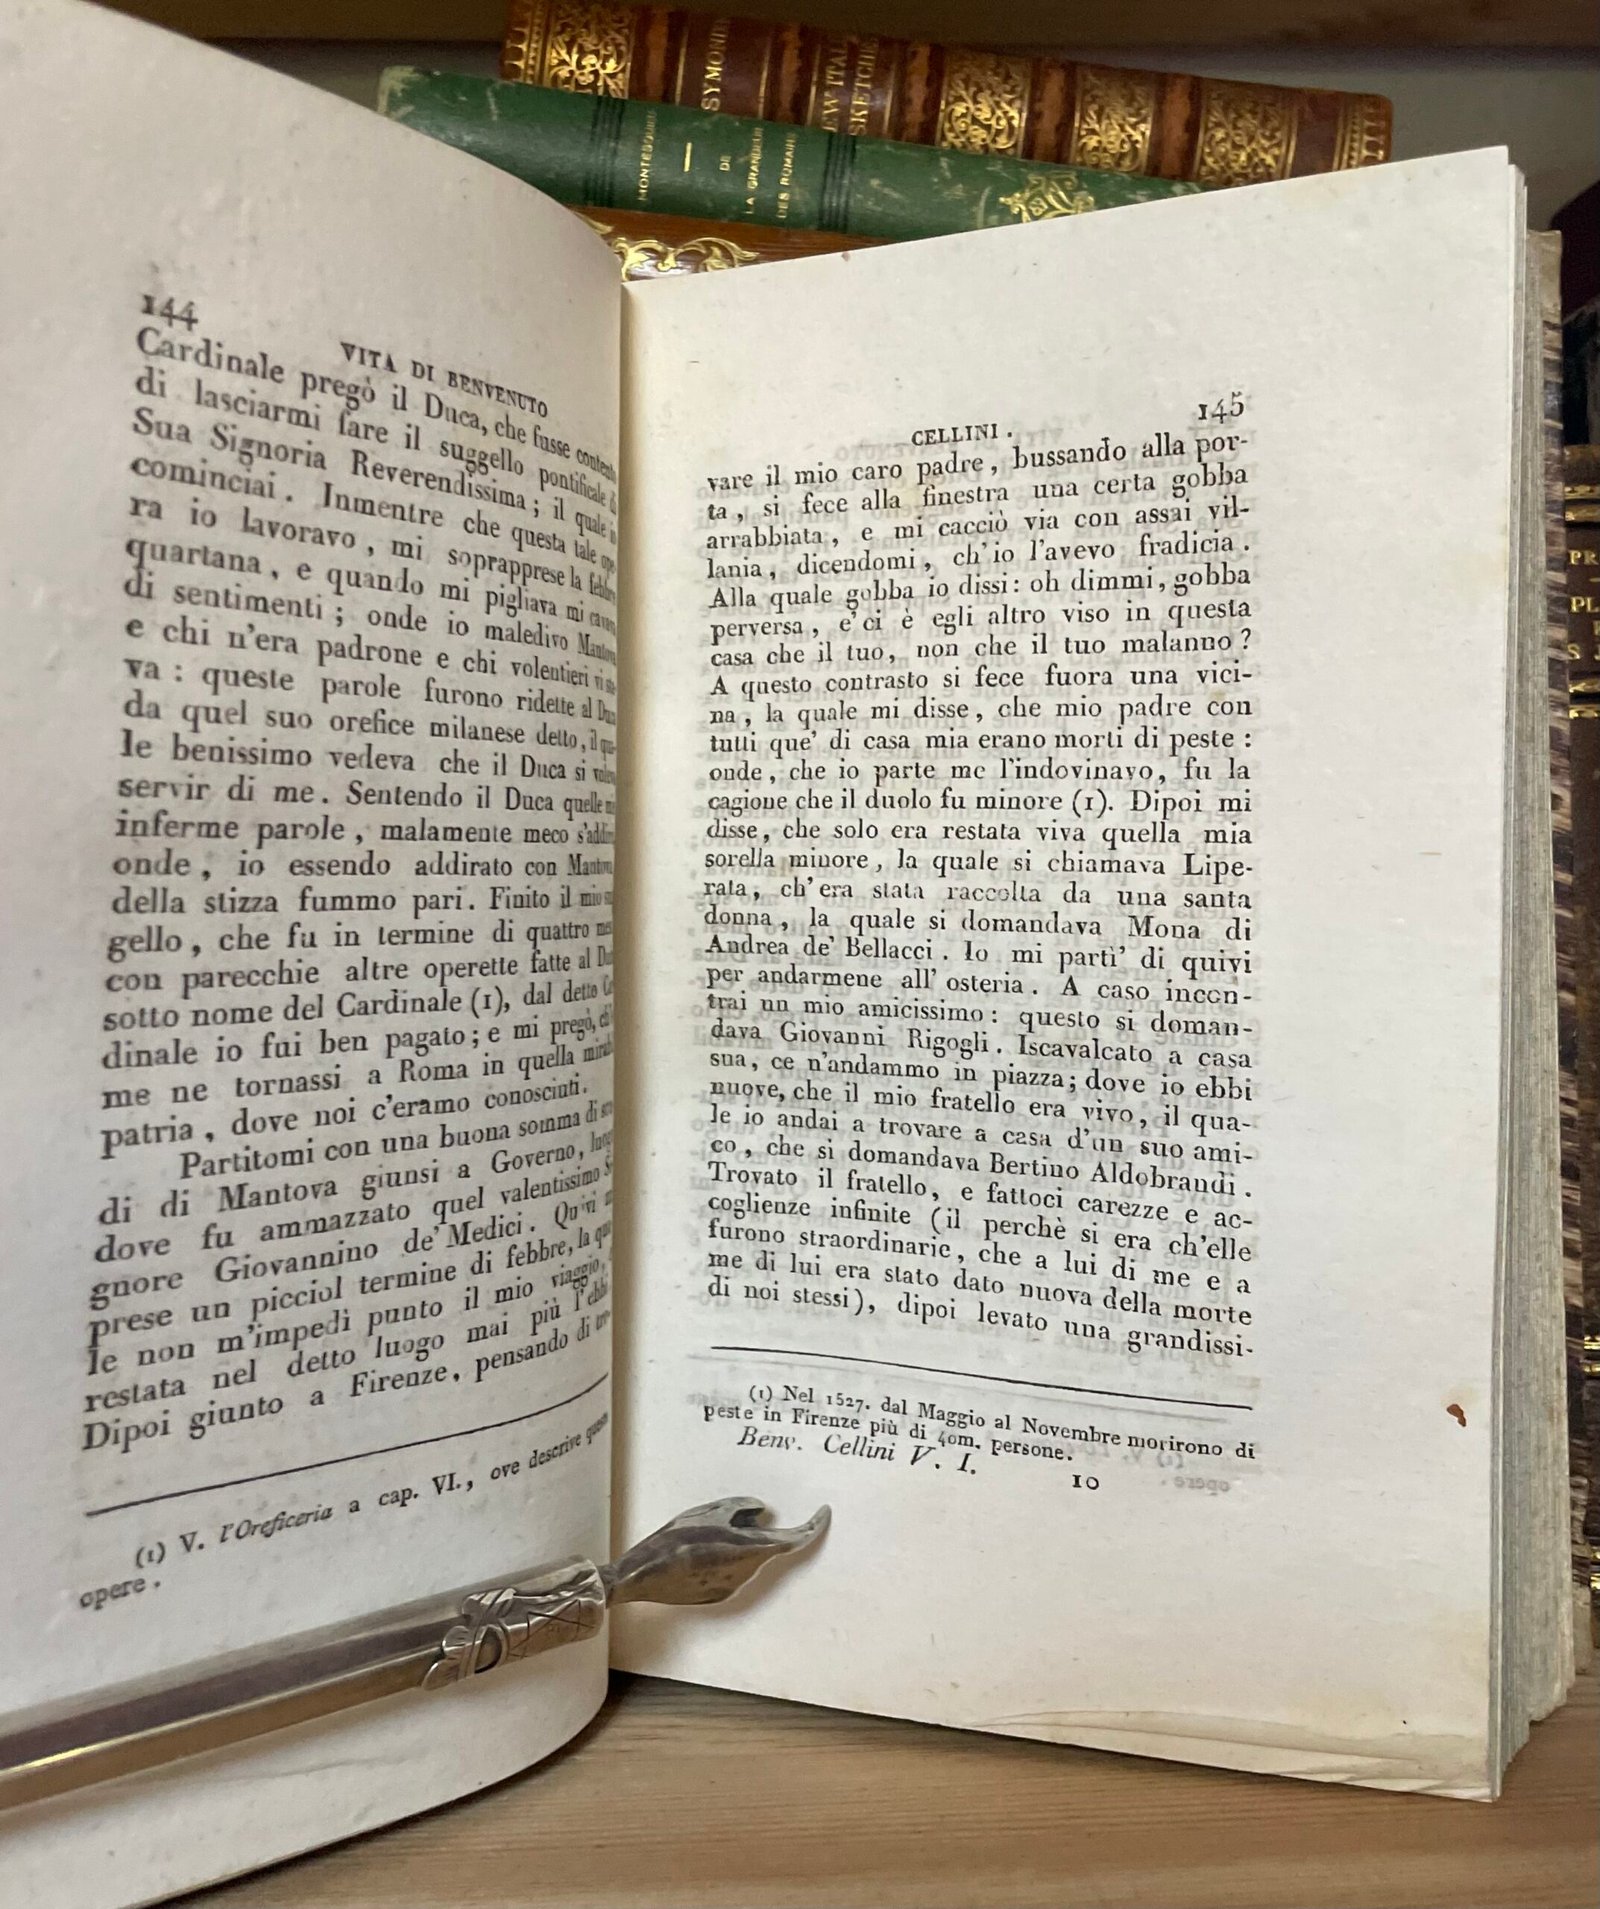 SYMONDS
NEW ITALIAN
SKETCHES
MONTESQUIEU
DE
LA GRANDEUR
DES ROMAINS
144
VITA DI BENVENUTO
Cardinale pregò il Duca, che fusse contento
di lasciarmi fare il suggello pontificale di
Sua Signoria Reverendissima; il quale io
cominciai. Inmentre che questa tale ope-
ra io lavoravo, mi soprapprese la febbre
quartana, e quando mi pigliava mi cavava
di sentimenti; onde io maledivo Mantova
e chi n'era padrone e chi volentieri vi sta-
va: queste parole furono ridette al Duca
da quel suo orefice milanese detto, il qua-
le benissimo vedeva che il Duca si voleva
servir di me. Sentendo il Duca quelle mie
inferme parole, malamente meco s'addirò
onde, io essendo addirato con Mantova
della stizza fummo pari. Finito il mio sug-
gello, che fu in termine di quattro mesi
con parecchie altre operette fatte al Duca
sotto nome del Cardinale (1), dal detto Car-
dinale io fui ben pagato; e mi pregò, ch'io
me ne tornassi a Roma in quella mirabil
patria, dove noi c'eramo conosciuti.
Partitomi con una buona somma di scu-
di di Mantova giunsi a Governo, luogo
dove fu ammazzato quel valentissimo Si-
gnore Giovannino de' Medici. Quivi mi
prese un picciol termine di febbre, la qua-
le non m'impedì punto il mio viaggio,
restata nel detto luogo mai più l'ebbi
Dipoi giunto a Firenze, pensando di tro-
(1) V. l'Oreficeria a cap. VI., ove descrive queste
opere.
CELLINI. 145
vare il mio caro padre, bussando alla por-
ta, si fece alla finestra una certa gobba
arrabbiata, e mi cacciò via con assai vil-
lania, dicendomi, ch'io l'avevo fradicia.
Alla quale gobba io dissi: oh dimmi, gobba
perversa, e' ci è egli altro viso in questa
casa che il tuo, non che il tuo malanno?
A questo contrasto si fece fuora una vici-
na, la quale mi disse, che mio padre con
tutti que' di casa mia erano morti di peste:
onde, che io parte me l'indovinavo, fu la
cagione che il duolo fu minore (1). Dipoi mi
disse, che solo era restata viva quella mia
sorella minore, la quale si chiamava Lipe-
rata, ch'era stata raccolta da una santa
donna, la quale si domandava Mona di
Andrea de' Bellacci. Io mi partì' di quivi
per andarmene all' osteria. A caso incon-
trai un mio amicissimo: questo si doman-
dava Giovanni Rigogli. Iscavalcato a casa
sua, ce n'andammo in piazza; dove io ebbi
nuove, che il mio fratello era vivo, il qua-
le io andai a trovare a casa d'un suo ami-
co, che si domandava Bertino Aldobrandi.
Trovato il fratello, e fattoci carezze e ac-
coglienze infinite (il perchè si era ch'elle
furono straordinarie, che a lui di me e a
me di lui era stato dato nuova della morte
di noi stessi), dipoi levato una grandissi-
(1) Nel 1527. dal Maggio al Novembre morirono di
peste in Firenze più di 40m. persone.
Benv. Cellini V. I. 10
PR
PL